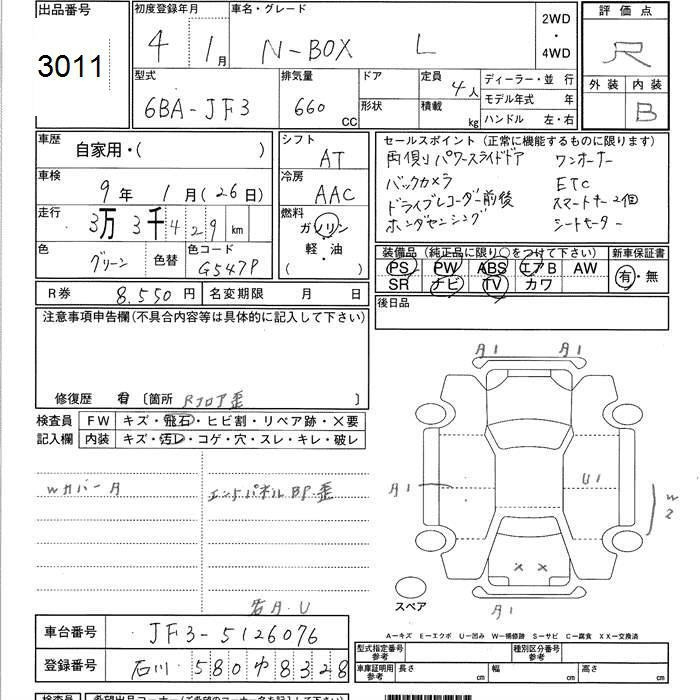 出品番号 初度登録年月 車名・グレード 2WD ・ 4WD 評価点
3011 4年 1月 N-BOX L R
型式 排気量 ドア 定員 4人 ディーラー・並 行 外装 内装
6BA-JF3 660 CC 形状 積載 kg モデル年式 年 B
ハンドル 左・右
車歴 自家用・( ) シフト AT セールスポイント (正常に機能するものに限ります)
両側パワースライドドア ワンオーナー
車検 9年 1月(26日) 冷房 AAC バックカメラ ETC
ドライブレコーダー前後 スマートキー2個
走行 3万3千429km 燃料 ガソリン ホンダセンシング シートヒーター
軽・油
( )
色 グリーン 色替 色コード G547P 装備品 (純正品に限り○をつけて下さい) 新車保証書
PS PW ABS エアB AW 有・無
SR ナビ TV カワ
R券 8,550円 名変期限 月 日 後日品
注意事項申告欄(不具合内容等は具体的に記入して下さい)
修復歴 有 〔箇所 Rフロア歪 〕
検査員 FW キズ・飛石・ヒビ割・リペア跡・×要
記入欄 内装 キズ・汚レ・コゲ・穴・スレ・キレ・破レ
Wカバー A エンドパネルBP歪
A1 A1
A1 U1 W2
× ×
A1
スペア
A-キズ E-エクボ U-凹み W-補修跡 S-サビ C-腐食 XX-交換済
車台番号 JF3-5126076 型式指定番号 参考 種別区分番号 参考
登録番号 石川 580ゆ8328 車庫証明用 参考 長さ cm 幅 cm 高さ cm
検査員 希望出品コーナー